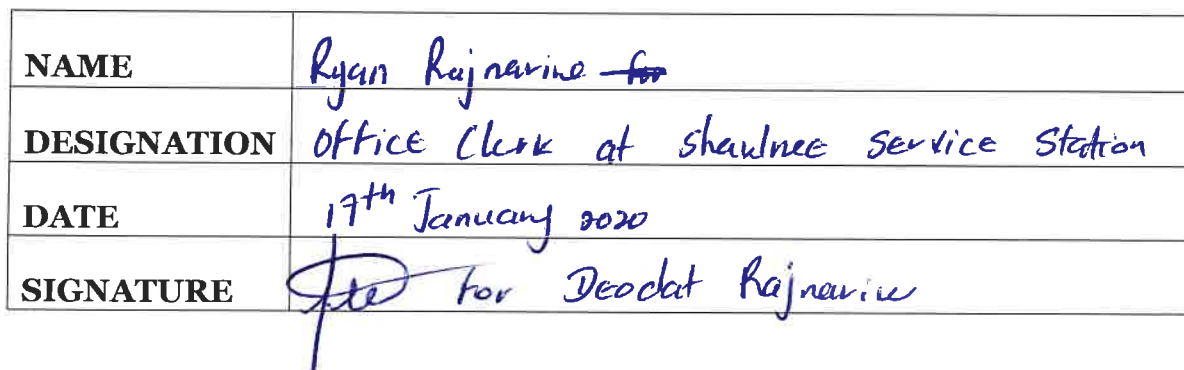 NAME Ryan Rajnarine for
DESIGNATION Office Clerk at Shawnee Service Station
DATE 17th January 2020
SIGNATURE for Deodat Rajnarine